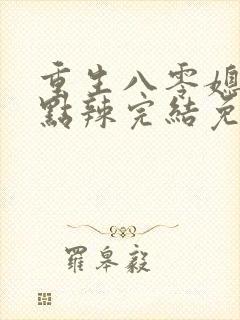 重生八零媳
點辣完結免
羅皋毅